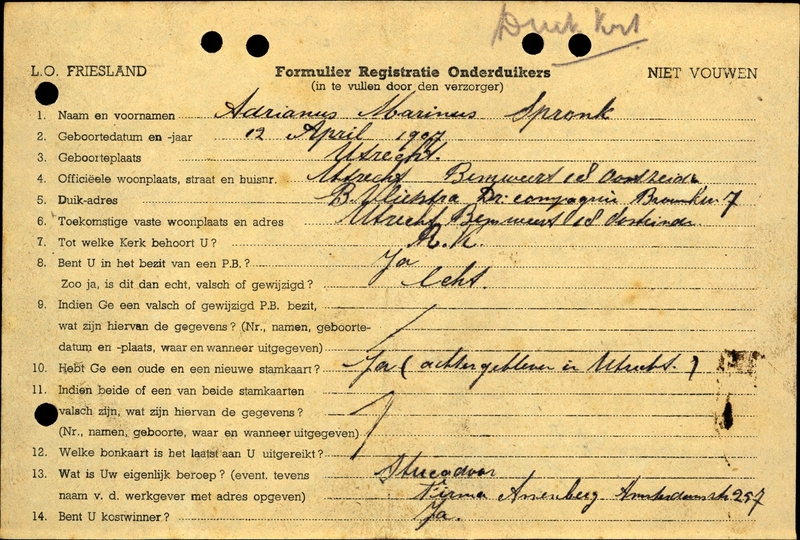 Duik krt
L.O. FRIESLAND Formulier Registratie Onderduikers NIET VOUWEN
(in te vullen door den verzorger)
1. Naam en voornamen Adrianus Marinus Spronk
2. Geboortedatum en -jaar 12 April
3. Geboorteplaats Utrecht.
4. Officiëele woonplaats, straat en huisnr. Utrecht 18
5. Duik-adres B. compagnie 7
6. Toekomstige vaste woonplaats en adres Utrecht 18
7. Tot welke Kerk behoort U? R.K.
8. Bent U in het bezit van een P.B.? Ja
Zoo ja, is dit dan echt, valsch of gewijzigd? echt.
9. Indien Ge een valsch of gewijzigd P.B. bezit,
wat zijn hiervan de gegevens? (Nr., namen, geboorte-
datum en -plaats, waar en wanneer uitgegeven)
10. Hebt Ge een oude en een nieuwe stamkaart? Ja (achtergebleven in Utrecht.)
11. Indien beide of een van beide stamkaarten
valsch zijn, wat zijn hiervan de gegevens?
(Nr., namen, geboorte, waar en wanneer uitgegeven)
12. Welke bonkaart is het laatst aan U uitgereikt?
13. Wat is Uw eigenlijk beroep? (event. tevens Stucadoor
naam v. d. werkgever met adres opgeven) Firma 257
14. Bent U kostwinner? Ja.